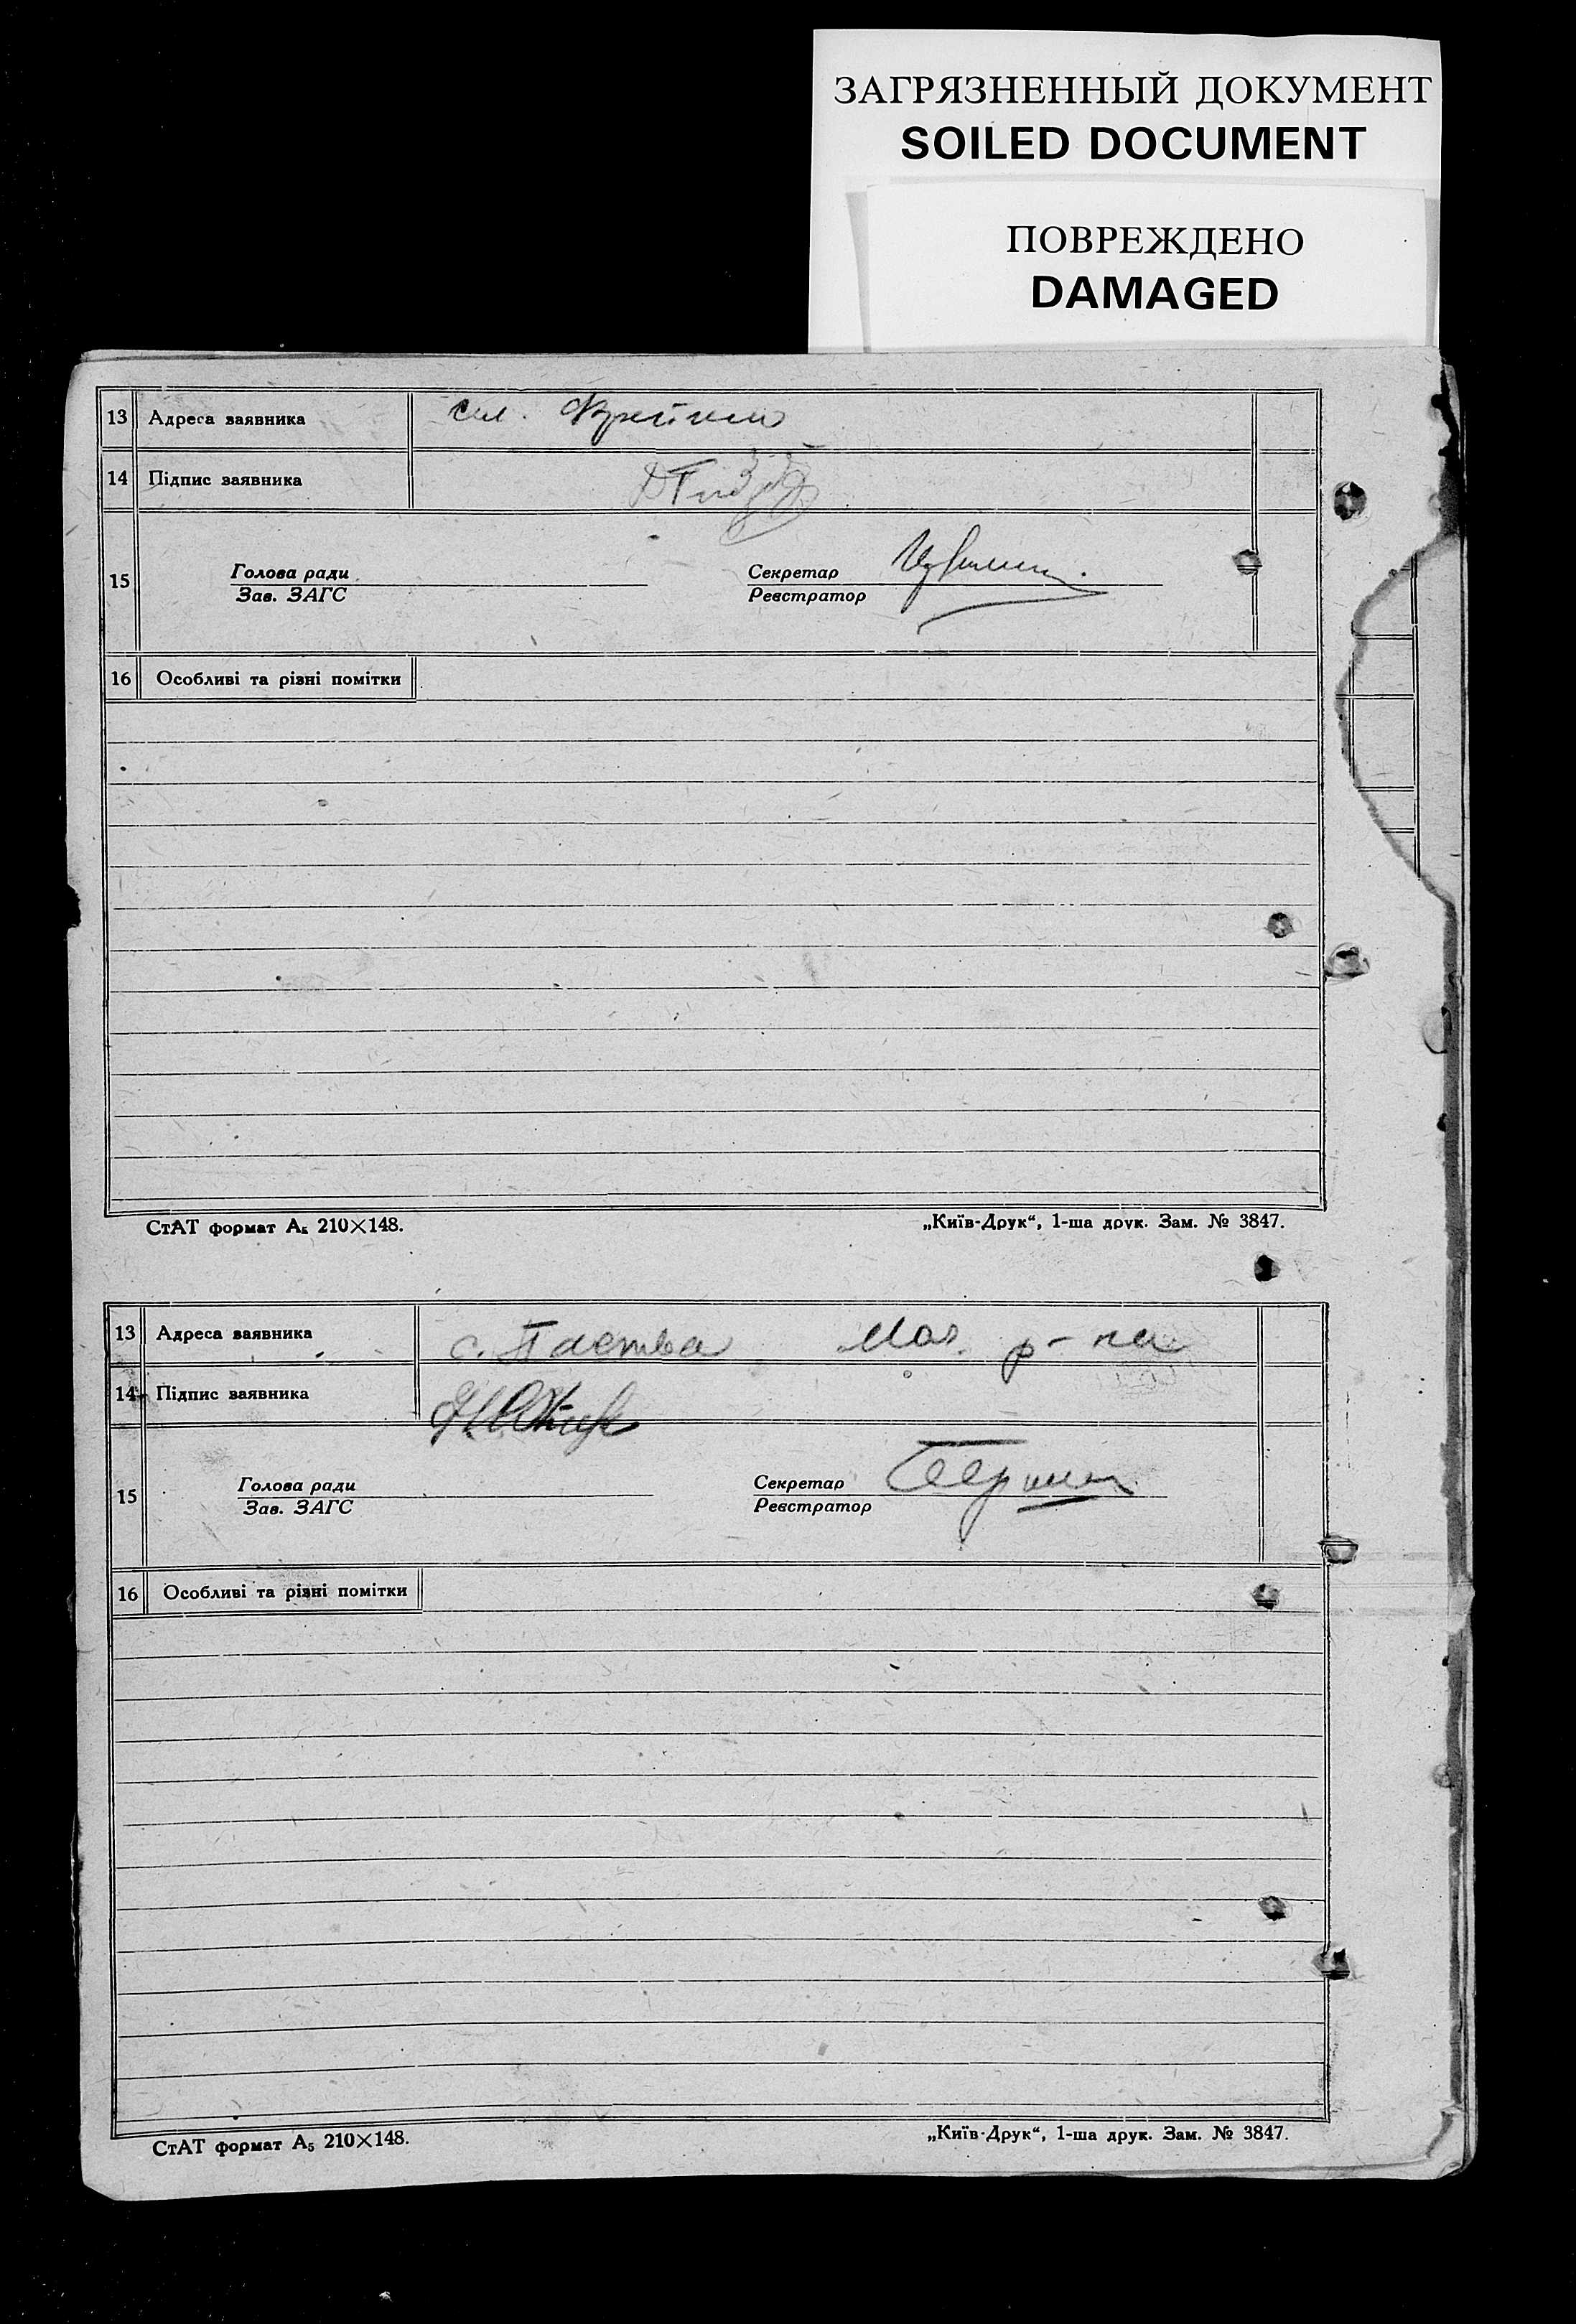 ЗАГРЯЗНЕННЫЙ ДОКУМЕНТ
SOILED DOCUMENT
ПОВРЕЖДЕНО
DAMAGED
13 Адреса заявника сел.
14 Підпис заявника
15 Голова ради Секретар
Зав. ЗАГС Реєстратор
16 Особливі та різні помітки
СтАТ формат А₅ 210×148. „Київ-Друк“, 1-ша друк. Зам. № 3847.
13 Адреса заявника с. р-на
14 Підпис заявника
15 Голова ради Секретар
Зав. ЗАГС Реєстратор
16 Особливі та різні помітки
СтАТ формат А₅ 210×148. „Київ-Друк“, 1-ша друк. Зам. № 3847.